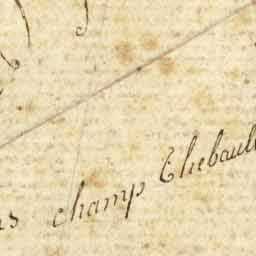 champ Thebault